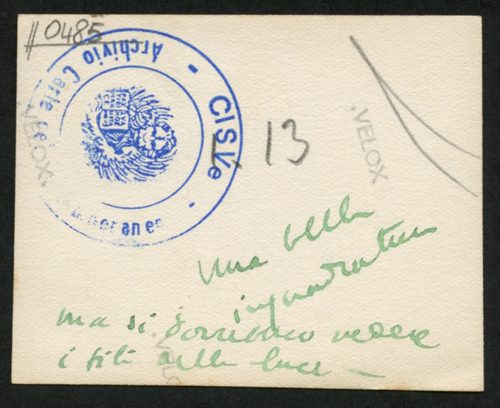 0485
CISVe
Archivio Carte
VELOX
13
VELOX
una bella
inquadratura
ma si dovrebbero vedere
i fili della luce –
VELOX